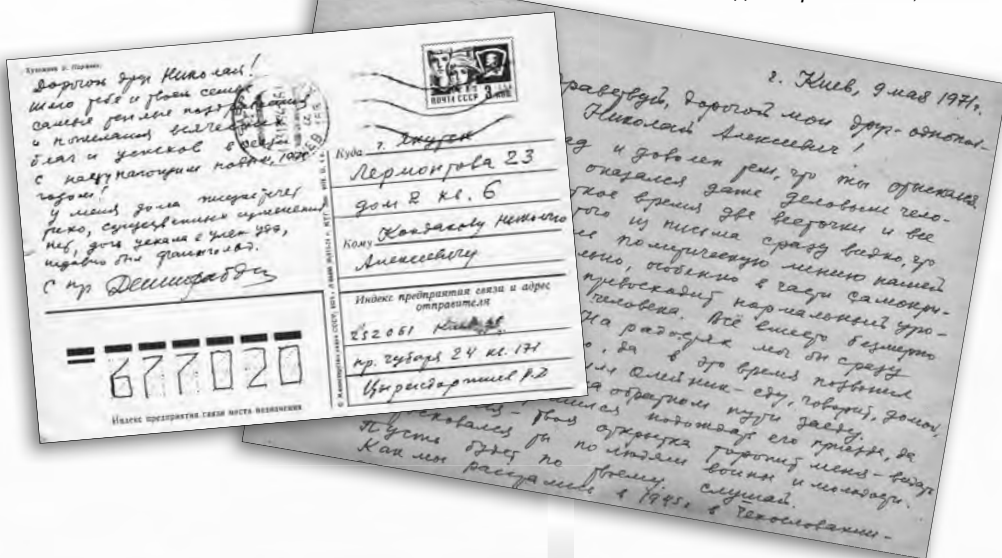 Дорогой друг Николай!
Шлю тебе и твоей семье
самые теплые поздравления
и пожелания всяческих
благ и успехов в связи
с наступающим новым, 197
годом!
У меня дома
существенных изменений
нет, дочь уехала в Улан-Удэ,
недавно был
С пр.
ПОЧТА СССР
Куда г. Якутск
Лермонтова 23
дом 2 кв. 6
Кому Кондакову Николаю
Алексеевичу
Индекс предприятия связи и адрес
отправителя
252061
пр. 24 кв. 171
677020
Индекс предприятия связи места назначения
г. Киев, 9 мая 1971г.
равствуй, дорогой мой друг-однопол-
Николай Алексеевич!
ад и доволен тем, что ты отыскался
оказался даже деловым чело-
ткое время две весточки и все
того из письма сразу видно, что
политическую линию нашей
льно, особенно в части самокри-
превосходит нормальный уро-
человека. Всё вместе безмерно
На радостях мы бы сразу
о, да в это время позвонил
Олейник - еду, говорит, домой,
на обратном пути заеду.
подождать его приезда, да
твоя открытка торопит меня - видать
ты по людям войны и молодости.
Пусть будет по твоему, слушай.
Как мы расстались в 1945г. в Чехословакии -